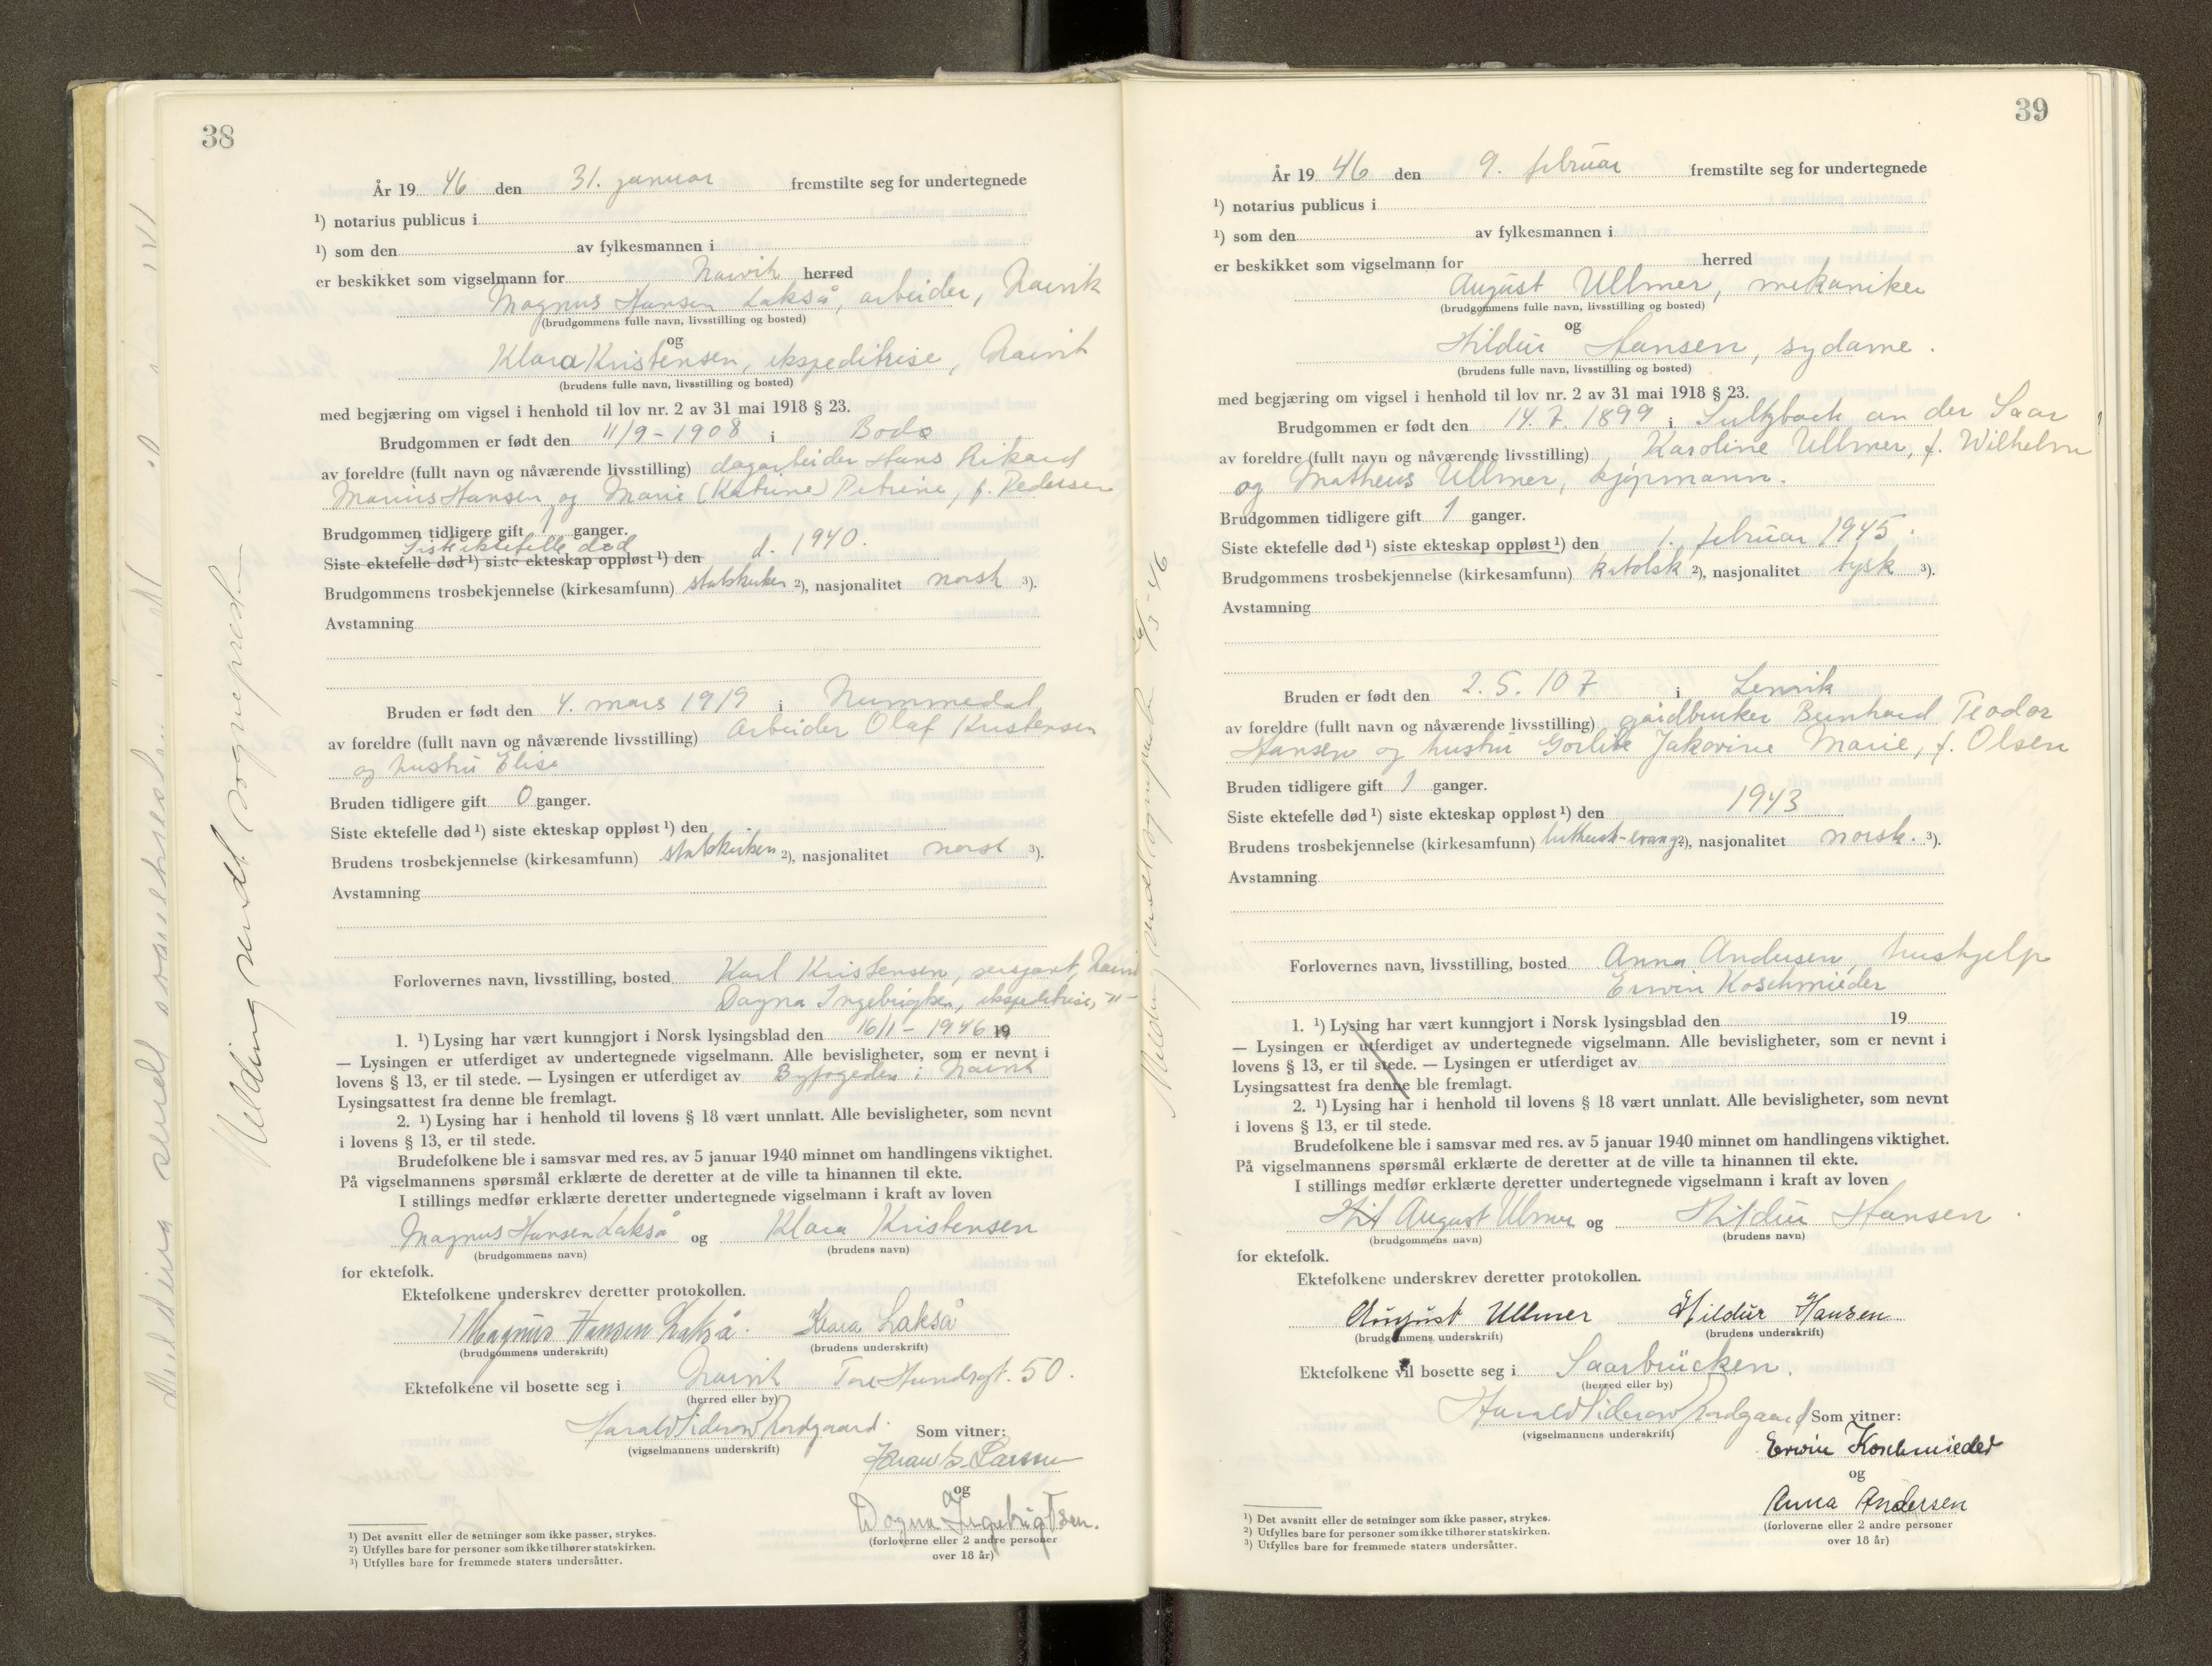 38
År 19 46 den 31. januar fremstilte seg for undertegnede
¹) notarius publicus i
¹) som den av fylkesmannen i
er beskikket som vigselmann for Narvik herred
Magnus Hansen Lakså, arbeider, Narvik
(brudgommens fulle navn, livsstilling og bosted)
og
Klara Kristensen, ekspeditrise, Narvik
(brudens fulle navn, livsstilling og bosted)
med begjæring om vigsel i henhold til lov nr. 2 av 31 mai 1918 § 23.
Brudgommen er født den 11/9-1908 i Bodø
av foreldre (fullt navn og nåværende livsstilling) dagarbeider Hans Rikard
Marius Hansen og Marie (Katrine) Petrine, f. Pedersen
Brudgommen tidligere gift 1 ganger.
Siste ektefelle død
Siste ektefelle død ¹) siste ekteskap oppløst ¹) den d. 1940.
Brudgommens trosbekjennelse (kirkesamfunn) statskirken ²), nasjonalitet norsk ³).
Avstamning
Bruden er født den 4. mars 1919 i Nummedal
av foreldre (fullt navn og nåværende livsstilling) Arbeider Olaf Kristensen
og hustru Elise
Bruden tidligere gift 0 ganger.
Siste ektefelle død ¹) siste ekteskap oppløst ¹) den
Brudens trosbekjennelse (kirkesamfunn) statskirken ²), nasjonalitet norsk ³).
Avstamning
Forlovernes navn, livsstilling, bosted Karl Kristensen, sersjant, Narvik
Dagna Ingebrigtsen, ekspeditrise, -"-
1. ¹) Lysing har vært kunngjort i Norsk lysingsblad den 16/1 - 1946 19
— Lysingen er utferdiget av undertegnede vigselmann. Alle bevisligheter, som er nevnt i
lovens § 13, er til stede. — Lysingen er utferdiget av Byfogeden i Narvik
Lysingsattest fra denne ble fremlagt.
2. ¹) Lysing har i henhold til lovens § 18 vært unnlatt. Alle bevisligheter, som nevnt
i lovens § 13, er til stede.
Brudefolkene ble i samsvar med res. av 5 januar 1940 minnet om handlingens viktighet.
På vigselmannens spørsmål erklærte de deretter at de ville ta hinannen til ekte.
I stillings medfør erklærte deretter undertegnede vigselmann i kraft av loven
Magnus Hansen Lakså og Klara Kristensen
(brudgommens navn) (brudens navn)
for ektefolk.
Ektefolkene underskrev deretter protokollen.
Magnus Hansen Lakså. Klara Lakså
(brudgommens underskrift) (brudens underskrift)
Ektefolkene vil bosette seg i Narvik Tore Hundsgt. 50.
(herred eller by)
Harald Siderow Nordgaard.
(vigselmannens underskrift)
Som vitner:
Larssen
og
Dagna Ingebrigtsen.
(forloverne eller 2 andre personer
over 18 år)
¹) Det avsnitt eller de setninger som ikke passer, strykes.
²) Utfylles bare for personer som ikke tilhører statskirken.
³) Utfylles bare for fremmede staters undersåtter.
Melding sendt sogneprest
39
År 19 46 den 9. februar fremstilte seg for undertegnede
¹) notarius publicus i
¹) som den av fylkesmannen i
er beskikket som vigselmann for herred
August Ullmer, mekaniker
(brudgommens fulle navn, livsstilling og bosted)
og
Hildur Hansen, sydame.
(brudens fulle navn, livsstilling og bosted)
med begjæring om vigsel i henhold til lov nr. 2 av 31 mai 1918 § 23.
Brudgommen er født den 14. 7. 1899 i Sultzbach an der Saar
av foreldre (fullt navn og nåværende livsstilling) Karoline Ullmer, f. Wilhelm
og Matheus Ullmer, kjøpmann.
Brudgommen tidligere gift 1 ganger.
Siste ektefelle død ¹) siste ekteskap oppløst ¹) den 1. februar 1945.
Brudgommens trosbekjennelse (kirkesamfunn) katolsk ²), nasjonalitet tysk ³).
Avstamning
Bruden er født den 2. 5. 107 i Lenvik
av foreldre (fullt navn og nåværende livsstilling) gårdbruker Bernhard Teodor
Hansen og hustru Jakovine Marie, f. Olsen
Bruden tidligere gift 1 ganger.
Siste ektefelle død ¹) siste ekteskap oppløst ¹) den 1943
Brudens trosbekjennelse (kirkesamfunn) luthersk-evang ²), nasjonalitet norsk. ³).
Avstamning
Forlovernes navn, livsstilling, bosted Anna Andersen, hushjelp
Erwin Koschmieder
1. ¹) Lysing har vært kunngjort i Norsk lysingsblad den 19
— Lysingen er utferdiget av undertegnede vigselmann. Alle bevisligheter, som er nevnt i
lovens § 13, er til stede. — Lysingen er utferdiget av
Lysingsattest fra denne ble fremlagt.
2. ¹) Lysing har i henhold til lovens § 18 vært unnlatt. Alle bevisligheter, som nevnt
i lovens § 13, er til stede.
Brudefolkene ble i samsvar med res. av 5 januar 1940 minnet om handlingens viktighet.
På vigselmannens spørsmål erklærte de deretter at de ville ta hinannen til ekte.
I stillings medfør erklærte deretter undertegnede vigselmann i kraft av loven
August Ulmer og Hildur Hansen.
(brudgommens navn) (brudens navn)
for ektefolk.
Ektefolkene underskrev deretter protokollen.
August Ullmer Hildur Hansen
(brudgommens underskrift) (brudens underskrift)
Ektefolkene vil bosette seg i Saarbrücken.
(herred eller by)
Harald Siderow Nordgaard
(vigselmannens underskrift)
Som vitner:
Erwin Koschmieder
og
Anna Andersen
(forloverne eller 2 andre personer
over 18 år)
¹) Det avsnitt eller de setninger som ikke passer, strykes.
²) Utfylles bare for personer som ikke tilhører statskirken.
³) Utfylles bare for fremmede staters undersåtter.
Melding sendt sogneprest 6/3-46